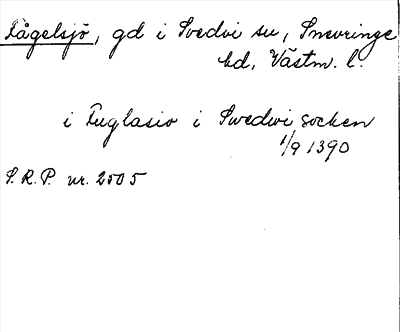 Fågelsjö, gd i Svedvi sn, Snevringe
hd, Västm. l.
i Fuglasio i Swedwi socken
1/9 1390
S.R.P. nr. 2505